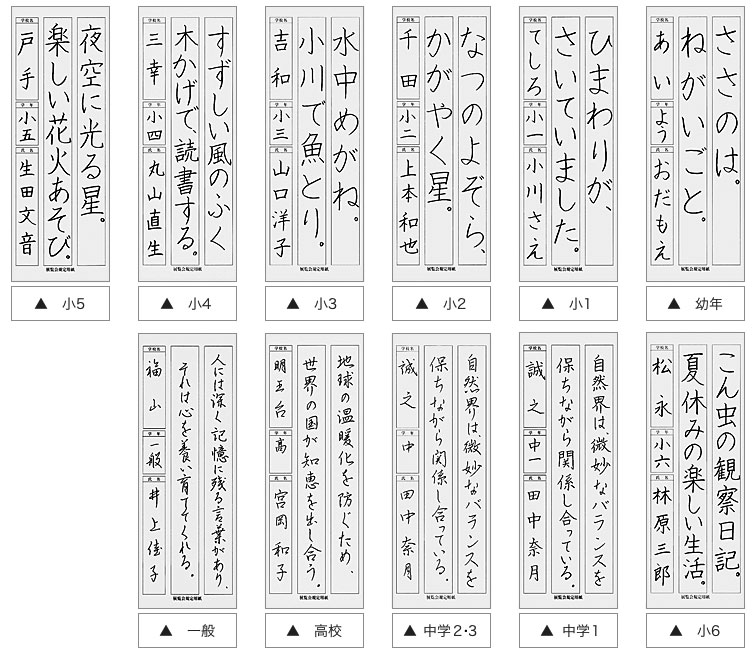 ささのは。
ねがいごと。
学校名 あい 学年 よう 氏名 おだもえ
展覧会規定用紙
▲ 幼年
ひまわりが、
さいていました。
学校名 てしろ 学年 小一 氏名 小川さえ
展覧会規定用紙
▲ 小1
なつのよぞら、
かがやく星。
学校名 千田 学年 小二 氏名 上本和也
展覧会規定用紙
▲ 小2
水中めがね。
小川で魚とり。
学校名 吉和 学年 小三 氏名 山口洋子
展覧会規定用紙
▲ 小3
すずしい風のふく
木かげで、読書する。
学校名 三幸 学年 小四 氏名 丸山直生
展覧会規定用紙
▲ 小4
夜空に光る星。
楽しい花火あそび。
学校名 戸手 学年 小五 氏名 生田文音
展覧会規定用紙
▲ 小5
こん虫の観察日記。
夏休みの楽しい生活。
学校名 松永 学年 小六 氏名 林原三郎
展覧会規定用紙
▲ 小6
自然界は、微妙なバランスを
保ちながら関係し合っている。
学校名 誠之 学年 中一 氏名 田中奈月
展覧会規定用紙
▲ 中学1
自然界は、微妙なバランスを
保ちながら関係し合っている。
学校名 誠之 学年 中 氏名 田中奈月
展覧会規定用紙
▲ 中学2・3
地球の温暖化を防ぐため、
世界の国が知恵を出し合う。
学校名 明王台 学年 高 氏名 宮岡和子
展覧会規定用紙
▲ 高校
人には深く記憶に残る言葉があり、
それは心を養い育ててくれる。
学校名 福山 学年 一般 氏名 井上佳子
展覧会規定用紙
▲ 一般